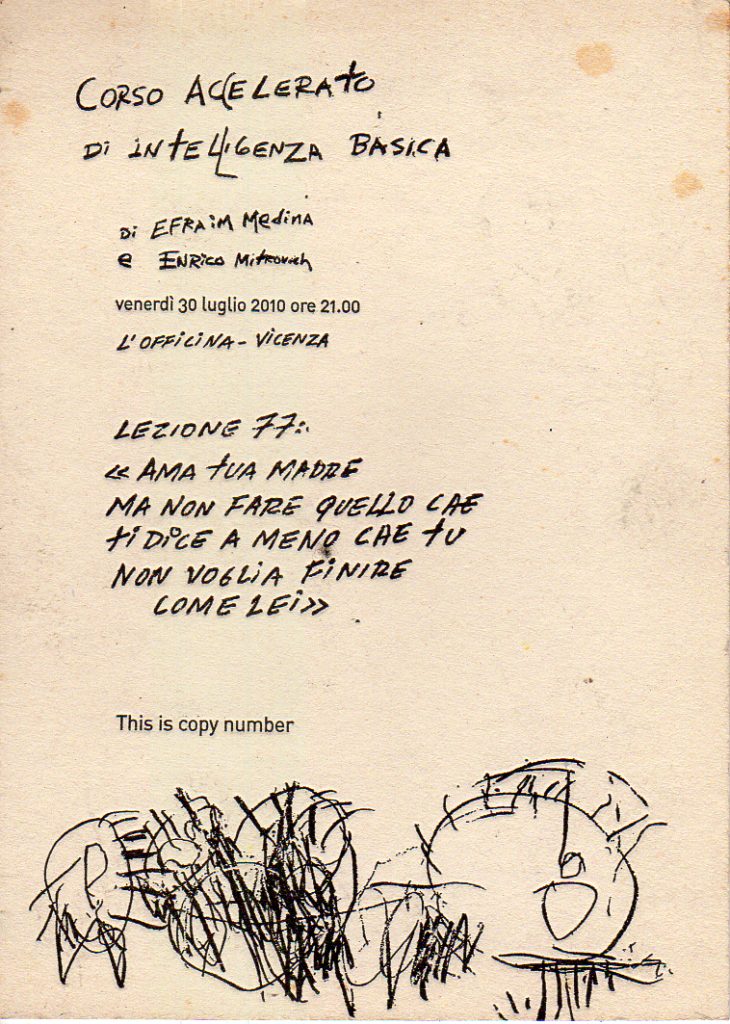 CORSO ACCELERATO
DI INTELLIGENZA BASICA
DI EFRAIM MEDINA
E ENRICO Mitrovich
venerdì 30 luglio 2010 ore 21.00
L'OFFICINA - VICENZA
LEZIONE 77:
« AMA TUA MADRE
MA NON FARE QUELLO CHE
TI DICE A MENO CHE TU
NON VOGLIA FINIRE
COME LEI»
This is copy number